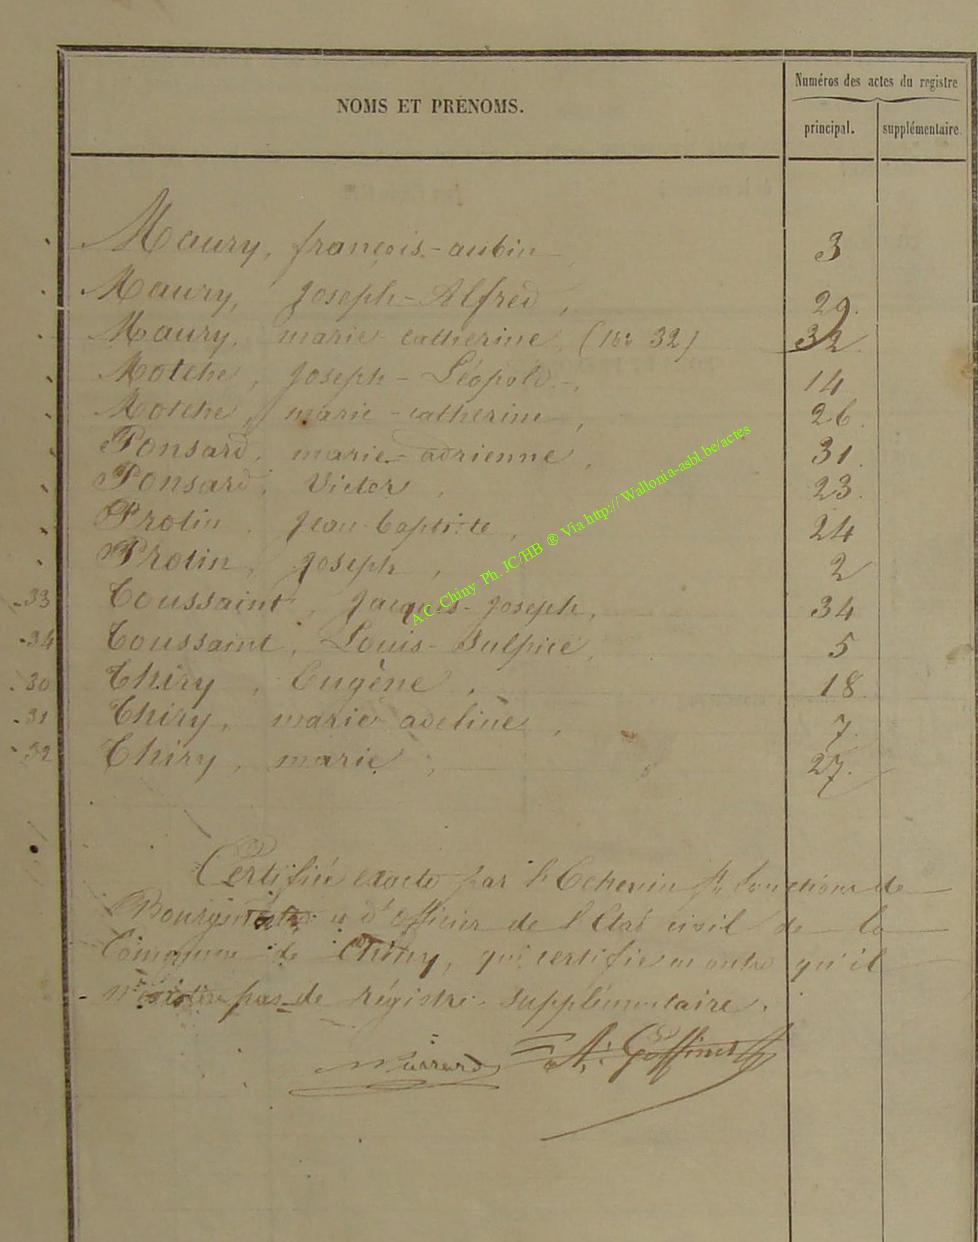 NOMS ET PRÉNOMS.
Numéros des actes du registre
principal. supplémentaire.
Maury, françois-aubin 3
Maury, Joseph-Alfred, 29.
Maury, marie catherine (No 32) 32.
Motche, Joseph-Léopold-, 14
Motche, marie-catherine, 26.
Ponsard, marie-adrienne, 31.
Ponsard, Victor, 23.
Protin Jean-baptiste, 24
Protin, Joseph, 2
-33 Toussaint, Jacques-Joseph, 34
-34 Toussaint, Louis-Sulpice, 5
-30 Thiry, Eugène, 18.
-31 Thiry, marie adeline, 7.
-32 Thiry, marie, 27.
Certifiée exacte par l'Echevin ff fonctions de
Bourgmestre et d'officier de l'Etat civil de la
Commune de Chiny, qui certifie en outre qu'il
n'existe pas de régistre supplémentaire.
A. Goffinet
A.C. Chiny Ph. JC/HB ® Via http://Wallonia-asbl.be/actes